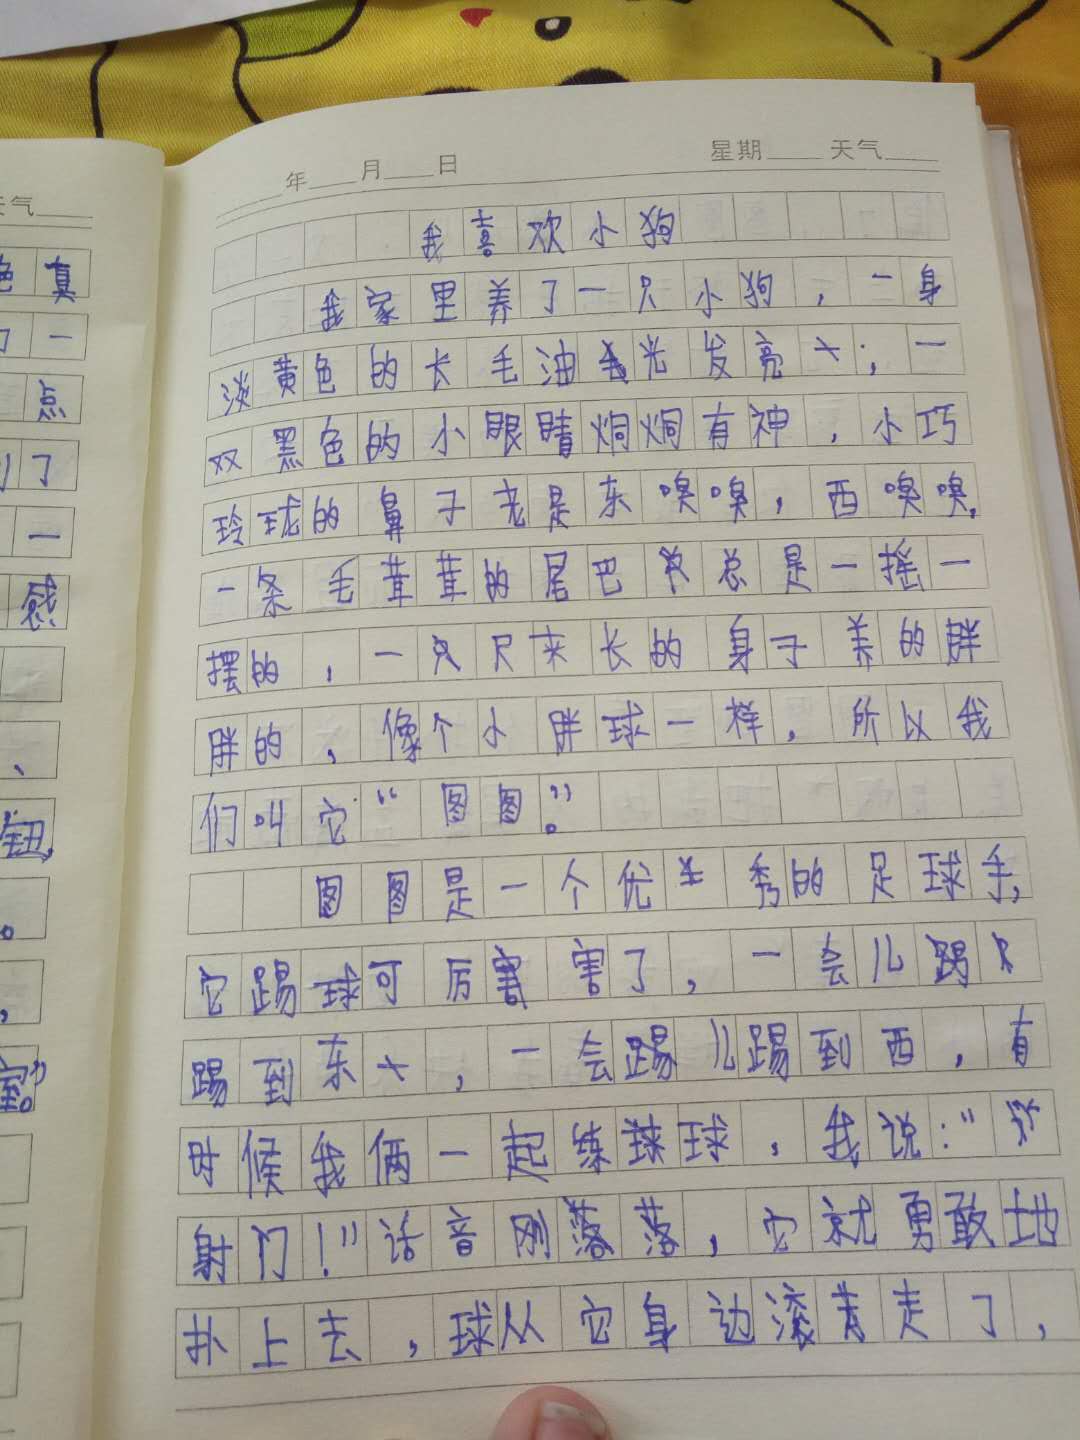 年 月 日 星期 天气
我喜欢小狗
我家里养了一只小狗，一身
淡黄色的长毛油光发亮；一
双黑色的小眼睛炯炯有神，小巧
玲珑的鼻子老是东嗅嗅，西嗅嗅，
一条毛茸茸的尾巴总是一摇一
摆的，一只尺来长的身子养的胖
胖的，像个小胖球一样，所以我
们叫它“图图”。
图图是一个优秀的足球手，
它踢球可厉害了，一会儿踢
踢到东，一会踢儿踢到西，有
时候我俩一起练球，我说：“
射门！”话音刚落，它就勇敢地
扑上去，球从它身边滚着走了，
天气
色真
了一
点
到了
一
感
、
钮，
。
，